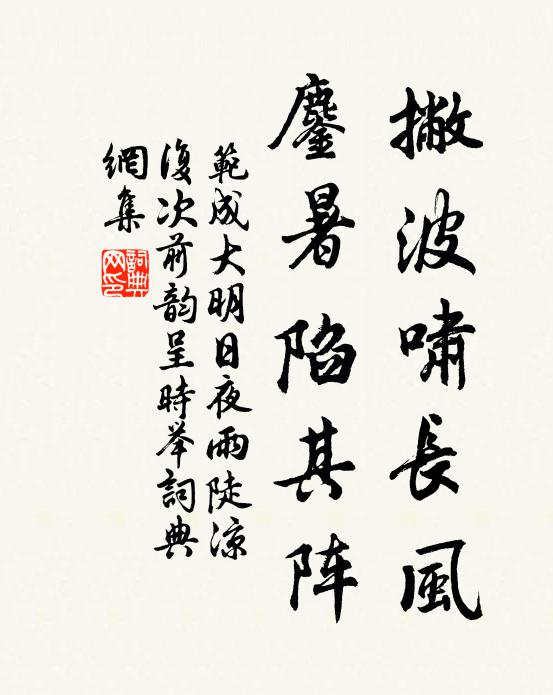 撇波啸長風
鏖暑陷其阵
範成大明日夜雨陡凉
復次前韵呈時举詞典
網集
詞典網印